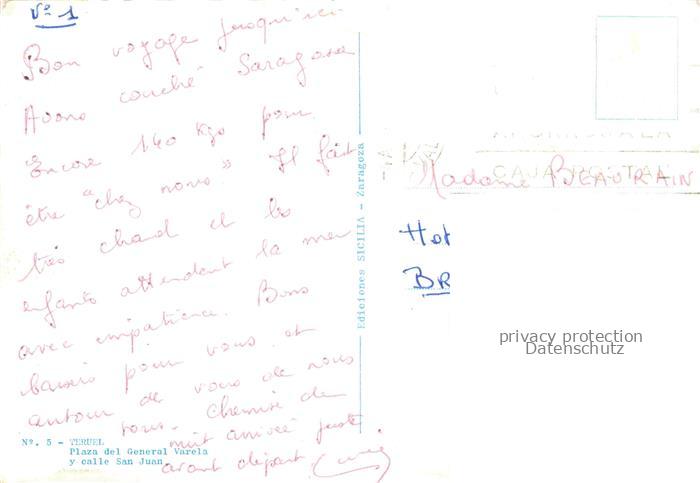 Nº 1
Bon voyage jusqu'ici
Avons couché Saragosse
Encore 140 kgs pour
être "chez nous". Il fait
très chaud et les
enfants attendent la mer
avec impatience. Bons
baisers pour vous et
autour de vous de nous
tous. Chemise de
nuit arrivée juste
avant départ
Nº. 5 - TERUEL
Plaza del General Varela
y calle San Juan
Ediciones SICILIA - Zaragoza
CAJA POSTAL
Madame BEAURAIN
Hot
BR
privacy protection
Datenschutz